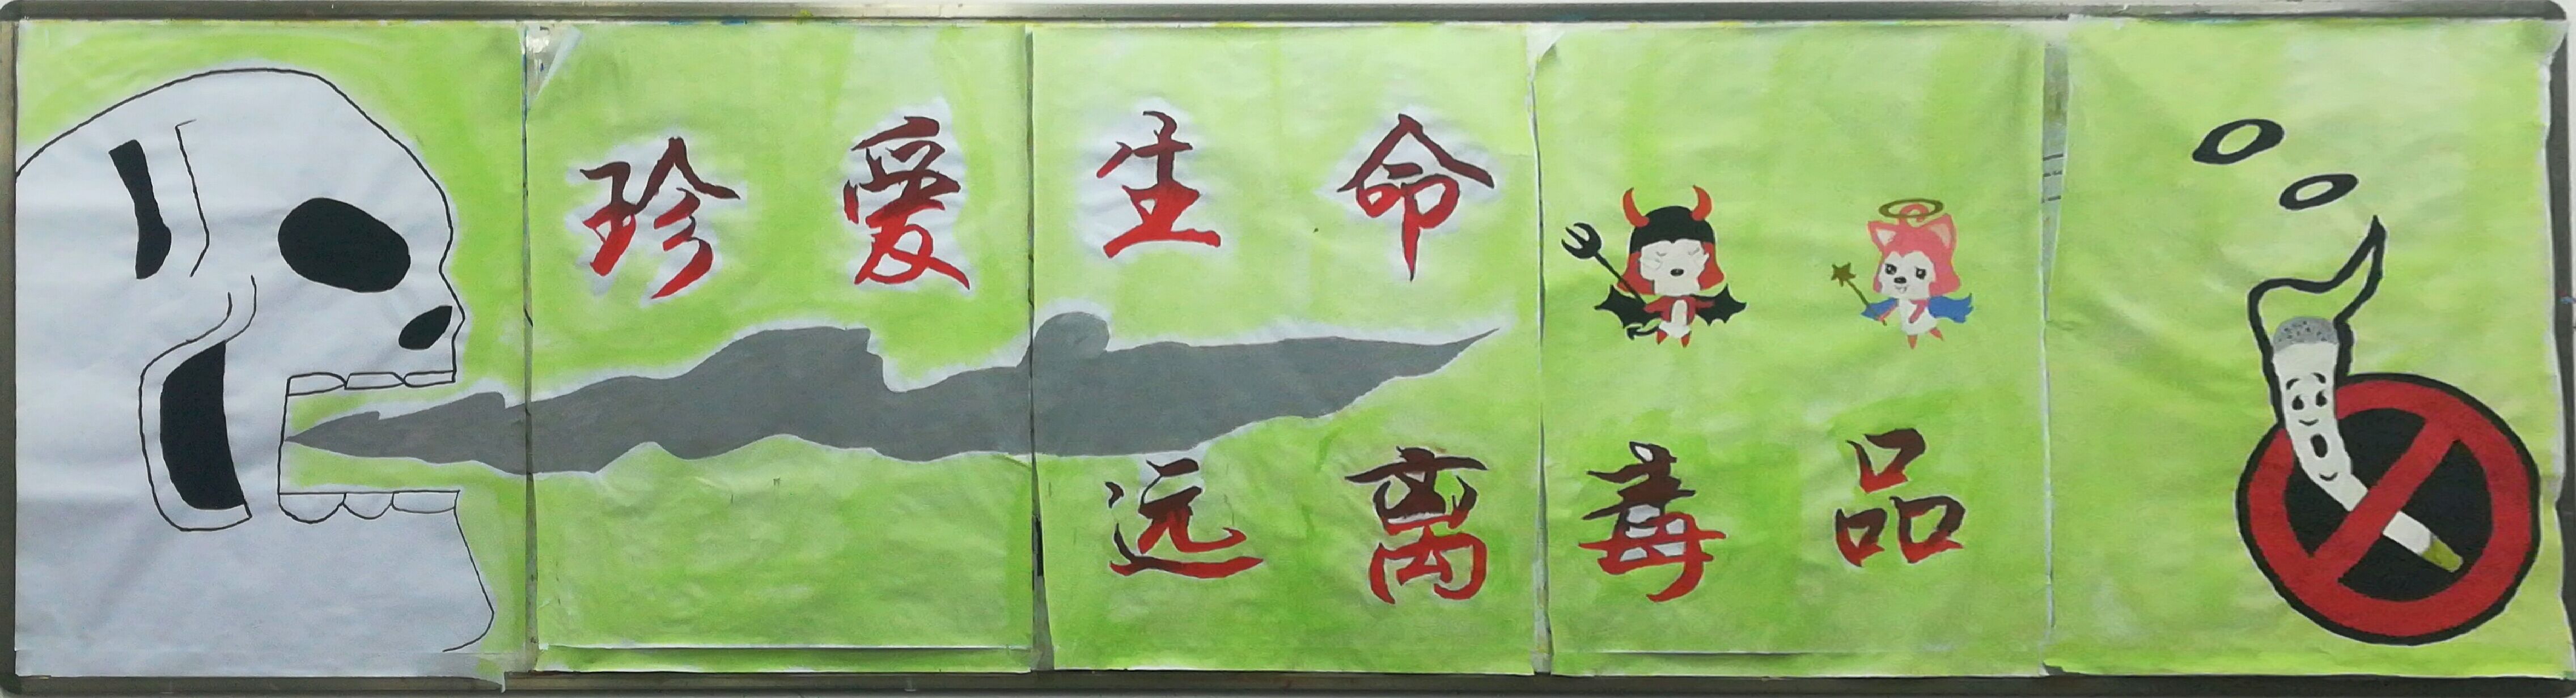 珍爱生命
远离毒品